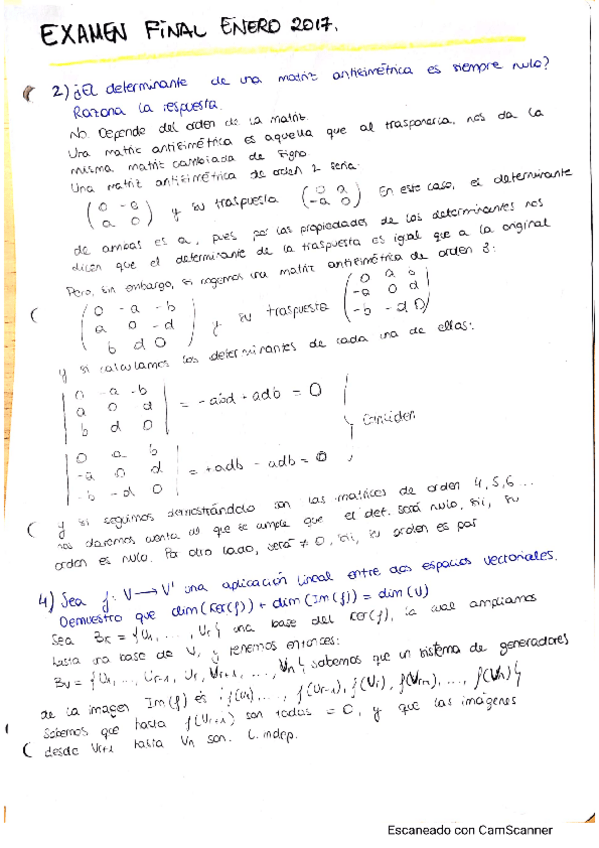 EXAMEN FINAL ENERO 2017.
2) ¿El determinante de una matriz antisimétrica es siempre nulo?
Razona la respuesta.
No. Depende del orden de la matriz.
Una matriz antisimétrica es aquella que al trasponerla, nos da la
misma matriz cambiada de signo.
Una matriz antisimétrica de orden 2 sería:
(0 -a
a 0) y su traspuesta (0 a
-a 0) En este caso, el determinante
de ambas es a, pues por las propiedades de los determinantes nos
dicen que el determinante de la traspuesta es igual que a la original
Pero, sin embargo, si cogemos una matriz antisimétrica de orden 3:
(0 -a -b
a 0 -d
b d 0) y su traspuesta (0 a b
-a 0 d
-b -d 0)
y si calculamos los determinantes de cada una de ellas:
|0 -a -b
a 0 d
b d 0| = -abd + adb = 0
|0 a b
-a 0 d
-b -d 0| = +adb - adb = 0
Coinciden
y si seguimos demostrándolo con las matrices de orden 4, 5, 6 ...
nos daremos cuenta de que se cumple que el det. será nulo, sii, su
orden es nulo. Por otro lado, será ≠ 0, sii, su orden es par
4) Sea f: V → V' una aplicación lineal entre dos espacios vectoriales.
Demuestra que dim(Ker(f)) + dim(Im(f)) = dim(V)
Sea Bk = {U1, ..., Ur} una base del Ker(f), la cual ampliamos
hasta una base de V, y tenemos entonces:
Bv = {U1, ..., Ur-1, Ur, Ur+1, ..., Un} sabemos que un sistema de generadores
de la imagen Im(f) es {f(U1), ..., f(Ur-1), f(Ur), f(Ur+1), ..., f(Un)}
Sabemos que hasta f(Ur+1) son todas = 0, y que las imágenes
desde Ur+1 hasta Un son L. indep.
Escaneado con CamScanner